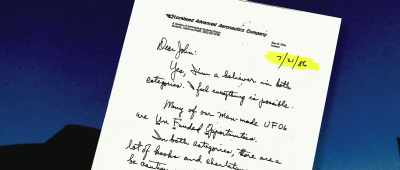 Lockheed Advanced Aeronautics Company
7/21/86
Dear John:
Yes, I'm a believer in both
categories. I feel everything is possible.
Many of our man-made UFOs
are Un Funded Opportunities.
In both categories, there are a
lot of kooks and charlatans
be cautious